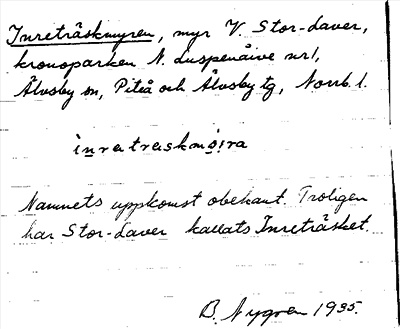 Inreträskmyren, myr V. Stor-Laver,
kronoparken N. Luspenåive nr 1,
Älvsby sn, Piteå och Älvsby tg, Norrb. l.
inretraskmo̤i̤ra
Namnets uppkomst obekant. Troligen
har Stor-Laver kallats Inreträsket.
B. Nygren 1935.